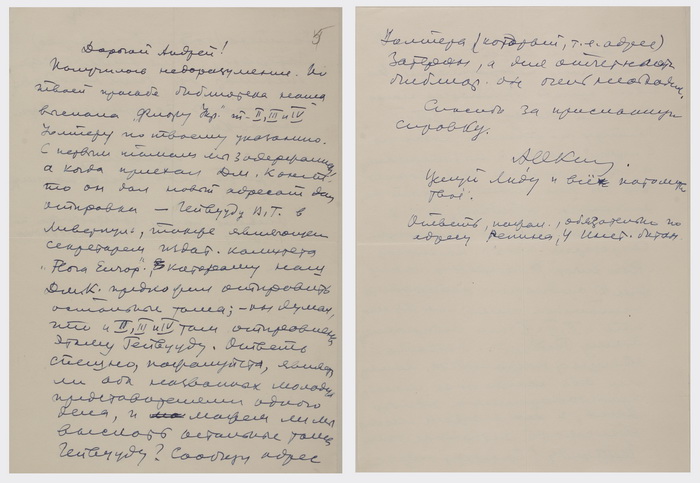 Дорогой Андрей!
Получилось недоразумение. По
твоей просьбе библиотека наша
выслала "Флору Укр." т. II, III и IV
Уолтеру по твоему указанию.
С первым томами мы задержались,
а когда приехал Дм. Конст.
то он дал новый адресат для
отправки — Гейвуду В.Т. в
Ливерпуль, также являющемся
секретарем издат. комитета
"Flora Europ.", которому наш
Дм.К. предложил отправить
остальные тома; — он думал,
что и II, III и IV том отправлены
этому Гейвуду. Ответь
спешно, пожалуйста, являют
ли оба названных молодца
представителями одного
дела, и можем ли мы
выслать остальные тома
Гейвуду? Сообщи адрес
Уолтера (который, т.е. адрес)
Затерян, а для отчетности
библиот. он очень необходим.
Спасибо за присланную
справку.
Целуй Лиду и всё потомство
Твой.
Ответь, пожал., обязательно по
адресу Репина, 4 Инст. ботан.